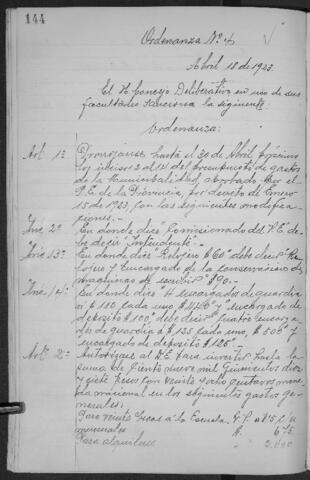 144
Ordenanza No. 4
Abril 18 de 1923.
El H. Concejo Deliberativo en uso de sus
facultades sanciona la siguiente:
Ordenanza:
Art. 1º Prorróganse hasta el 30 de Abril próximo
los incisos 2 al 14 del Presupuesto de gastos
de la Municipalidad aprobado por el
P.E. de la Provincia, por decreto de Enero
15 de 1923, con las siguientes modifica-
ciones.-
Inc. 2º En donde dice Comisionado del P.E. de-
be decir "Intendente".-
Inc. 13º En donde dice Relojero $ 60 debe decir Re-
lojero y Encargado de la conservación de
máquinas de escribir $ 90.-
Inc. 14º En donde dice 4 encargados de guardia
a $ 110 cada uso $ 440 y encargado de
depósito $ 100, debe decir Cuatro encarga-
dos de guardia á $ 135 cada uno, $ 506 y
encargado de depósito $ 125.-
Art. 2º Autorízase al D.E. para invertir hasta la
suma de nueve mil Quinientos diez
y siete pesos con veinte y ocho centavos mone-
da nacional en los siguientes gastos ge-
nerales:
Para veinte becas á la Escuela. G. P. a $ 15 c/u
mensuales 675
Para alquileres 2.000